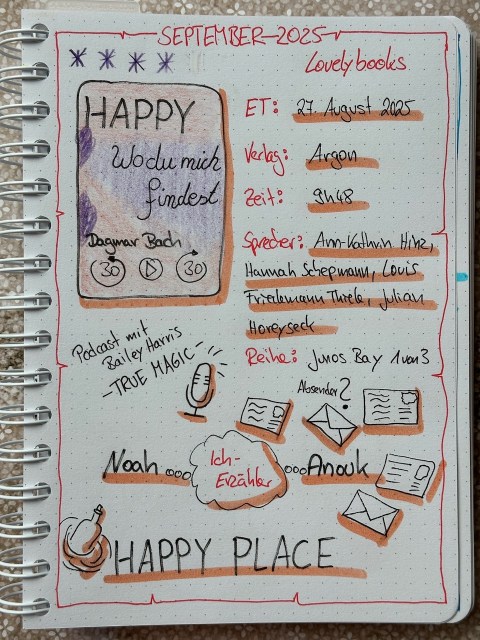 SEPTEMBER 2025
Lovelybooks
HAPPY
Wo du mich
findest
Dagmar Bach
30 30
ET: 27. August 2025
Verlag: Argon
Zeit: 9h48
Sprecher: Ann-Kathrin Hinz,
Hannah Schepmann, Louis
Friedemann Thiele, Julian
Horeyseck
Reihe: Junos Bay 1 von 3
Podcast mit
Bailey Harris
- TRUE MAGIC -
Absender?
Noah
Ich-
Erzähler
Anouk
HAPPY PLACE